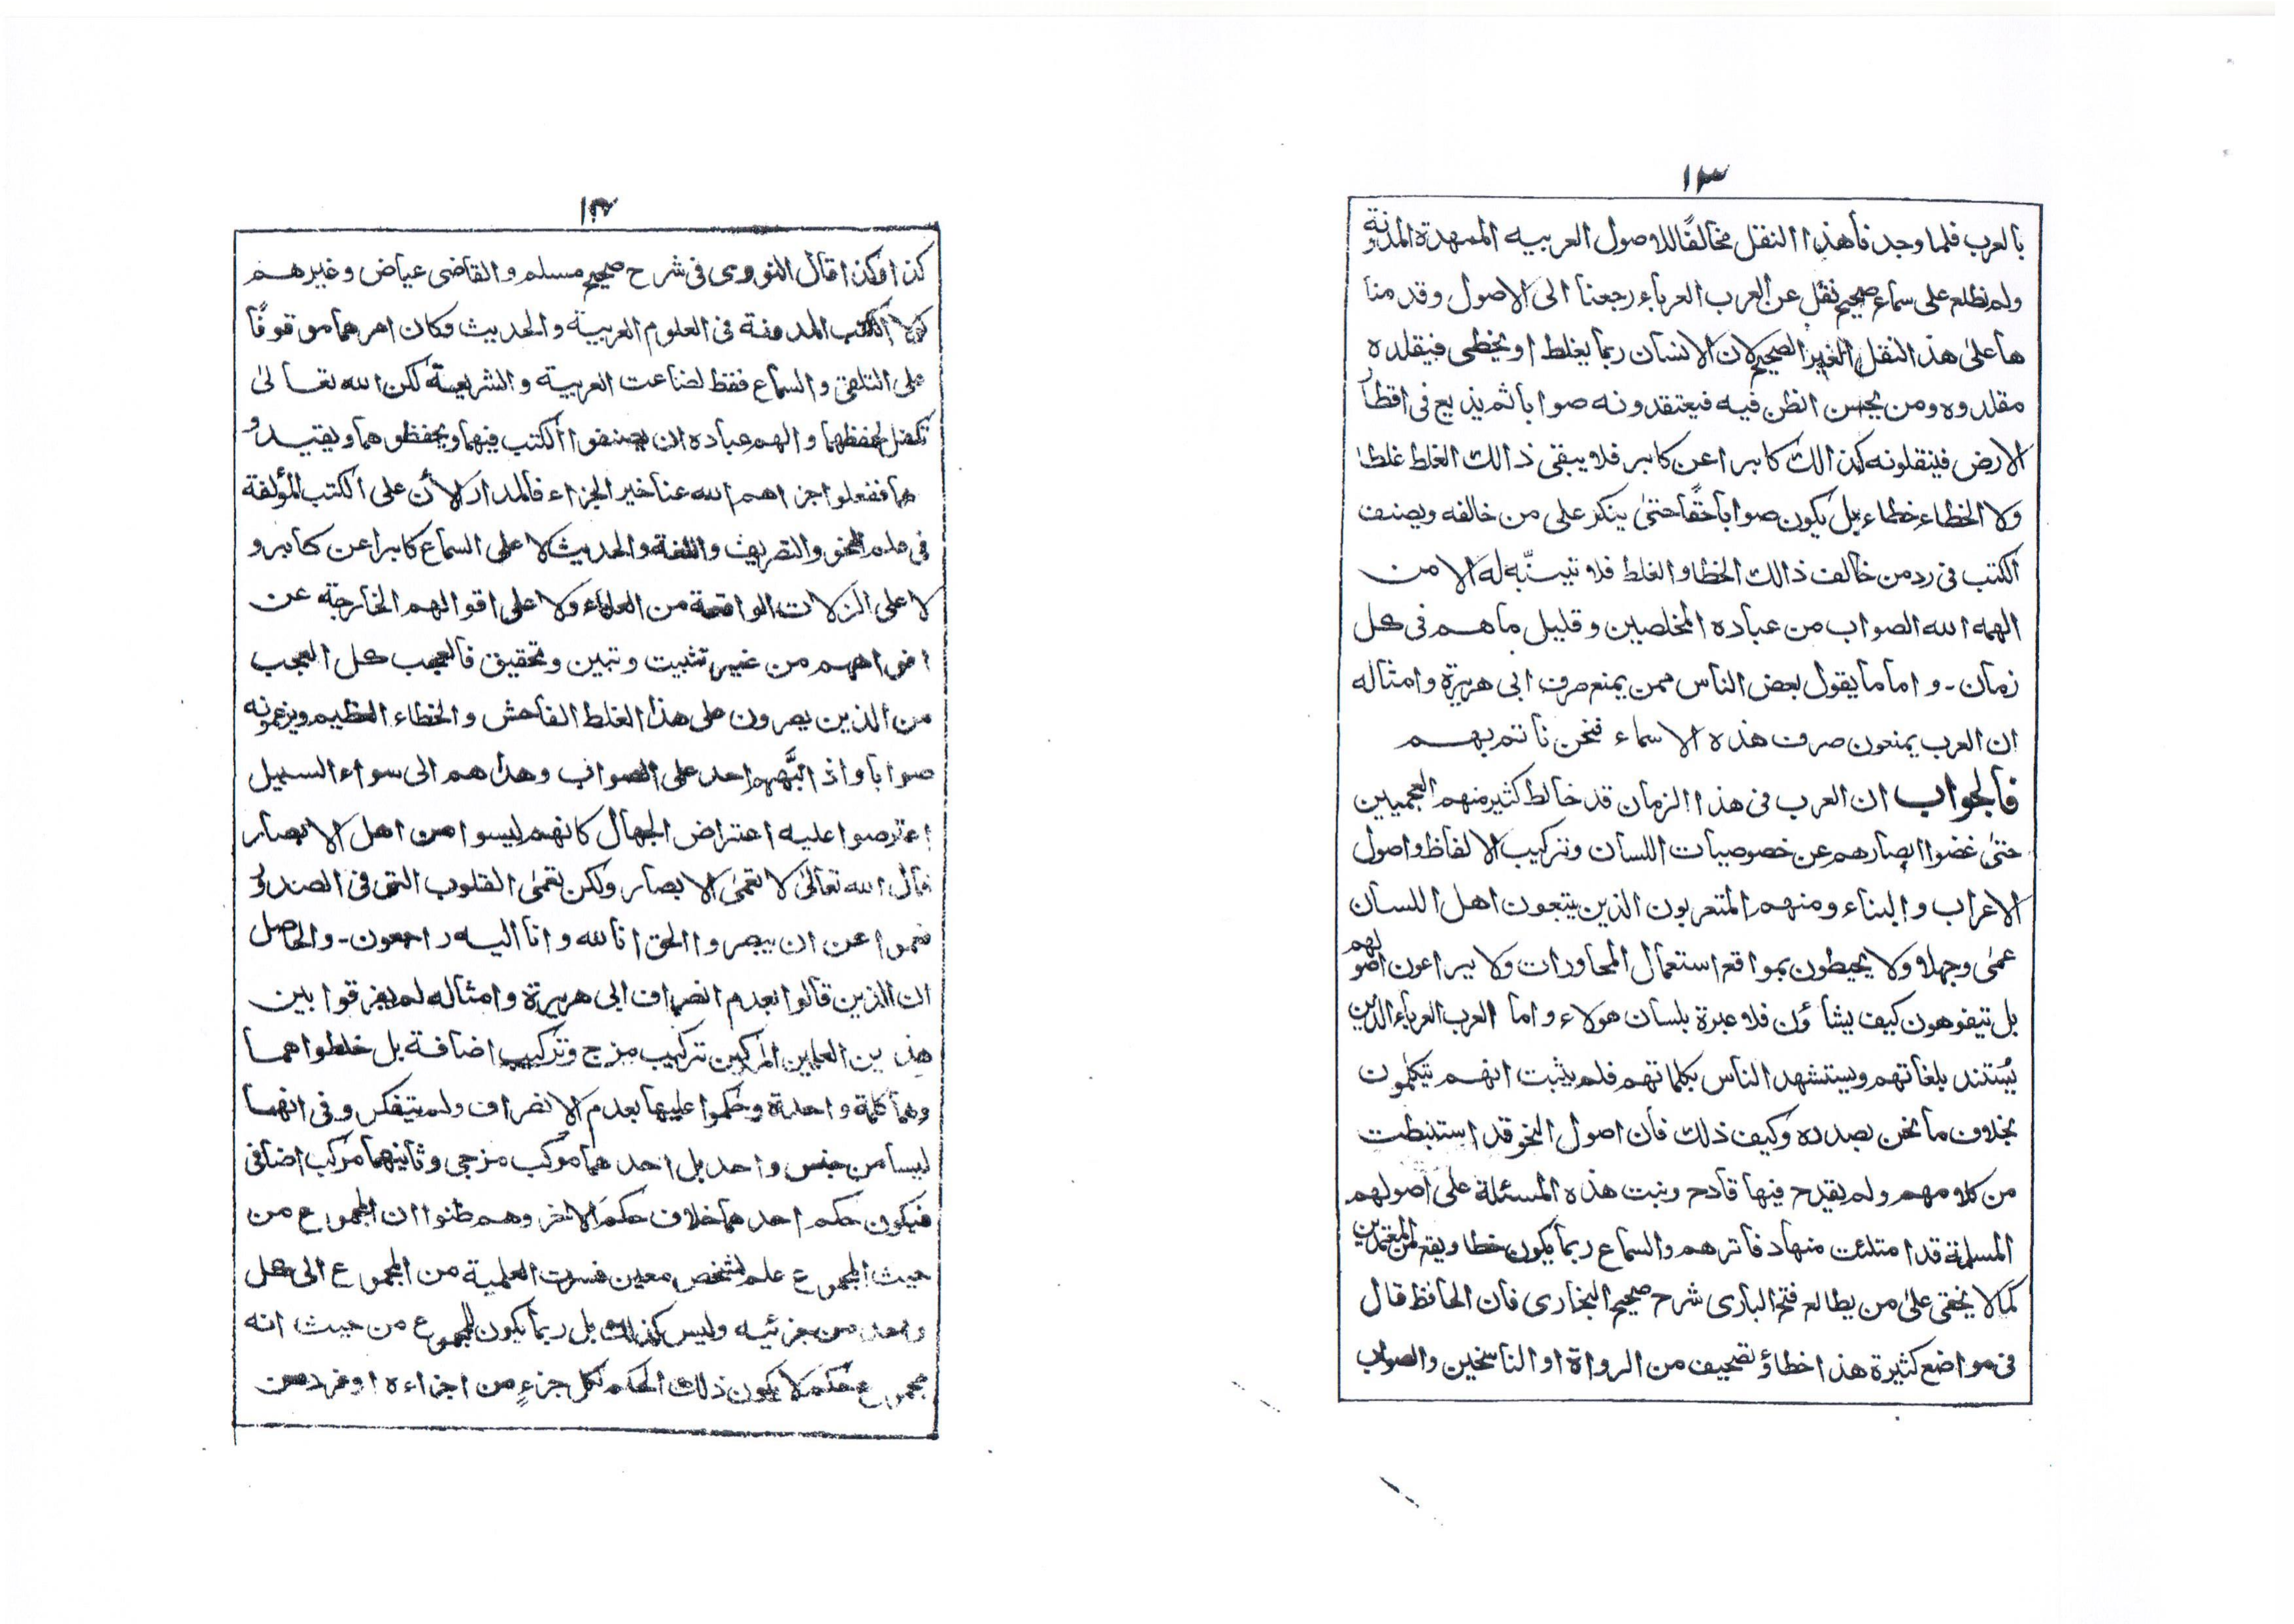 ١٣
بالعرب فلما وجدنا هذا النقل مخالفًا للاصول العربيه الممهدة المدونة
ولم نطلع على سماع صحيح نقل عن العرب العرباء رجعنا الى الاصول وقدمنا
ها على هذ النقل الغير الصحيح لان الانسان ربما يغلط او يخطى فيقلده
مقلدوه ومن يحسن الظن فيه فيعتقدونه صوابا ثم يذيع فى اقطار
الارض فينقلونه كذالك كابرا عن كابر فلا يبقى ذالك الغلط غلطا
ولا الخطاء خطاء بل يكون صوابا حقًا حتىٰ ينكر على من خالفه ويصنف
الكتب فى رد من خالف ذالك الخطا والغلط فلا تيتنبّه له الا من
الهمه الله الصواب من عباده المخلصين وقليل ما هم فى كل
زمان ـ واما ما يقول بعض الناس ممن يمنع صرف ابى هريرة وامثاله
ان العرب يمنعون صرف هذه الاسماء فنحن ناتم بهم
فالجواب ان العرب فى هذا الزمان قد خالط كثير منهم العجميين
حتىٰ غضوا ابصارهم عن خصوصيات اللسان وتركيب الالفاظ واصول
الاعراب والبناء ومنهم المتعربون الذين يتبعون اهل اللسان
عمىٰ وجهلا ولا يحيطون بمواقع استعمال المحاورات ولا يراعون اصولهم
بل تيفوهون كيف يشاؤن فلا عبرة بلسان هولاء واما العرب العرباء الذين
يُستند بلغاتهم ويستشهد الناس بكلماتهم فلم يثبت انهم تيكلمون
بخلاف ما نحن بصدده وكيف ذلك فان اصول النحو قد استنبطت
من كلامهم ولم يقدح فيها قادح وبنت هذه المسئلة علىٰ اصولهم
المسلمة قد امتلئت منها دفاترهم والسماع ربما يكون خطا ويقع من المعتمدين
كمالا يخفى علىٰ من يطالع فتح البارى شرح صحيح البخارى فان الحافظ قال
فى مواضع كثيرة هذا خطاؤ تصحيف من الرواة او الناسخين والصواب
١٤
كذا وكذا قال النووى فى شرح صحيح مسلم والقاضى عياض وغيرهم
لولا الكتب المدونة فى العلوم العربية والحديث وكان امرهما موقوفًا
على التلقى والسماع فقط لضاعت العربية والشريعة لكن الله تعالىٰ
تكفل لحفظهما والهم عباده ان يصنفوا الكتب فيهما ويحفظوهما ويقيدو
هما ففعلوا جزاهم الله عنا خير الجزاء فالمدار لاٰن على الكتب المؤلفة
فى علم النحو والتصريف واللغة والحديث لا على السماع كابرا عن كابر و
لا على الزلات الواقعة من العلماء ولا على اقوالهم الخارجة عن
افواههم من غير تثبيت وتبين وتحقيق فالعجب كل العجب
من الذين يصرون على هذا الغلط الفاحش والخطاء العظيم ويزعمونه
صوابا واذا نبَّههم احد على الصواب وهداهم الى سواء السبيل
اعترضوا عليه اعتراض الجهال كانهم ليسوا من اهل الابصار
قال الله تعالىٰ لا تعمىٰ الابصار ولكن تعمىٰ القلوب التى فى الصدور
فعموا عن ان يبصروا الحق انا لله وانا اليه راجعون ـ والحاصل
ان الذين قالوا بعدم انصراف ابى هريرة وامثاله لم يفرقوا بين
هذين العلمين المركبين تركيب مزج وتركيب اضافة بل خلطواهما
وهما كلمة واحدة وحكموا عليهما بعدم الانصراف ولم يتفكروفى انهما
ليسا من جنس واحد بل احدهما مركب مزجى وثانيهما مركب اضافى
فيكون حكم احدهما خلاف حكم الاخر وهم ظنوا ان المجموع من
حيث المجموع علم لشخص معين فسرت العلمية من المجموع الى كل
واحد من جزئيه وليس كذالك بل ربما يكون للمجموع من حيث انه
مجموع حكم لا يكون ذلك الحكم لكل جزءٍ من اجزاءه او فرد من